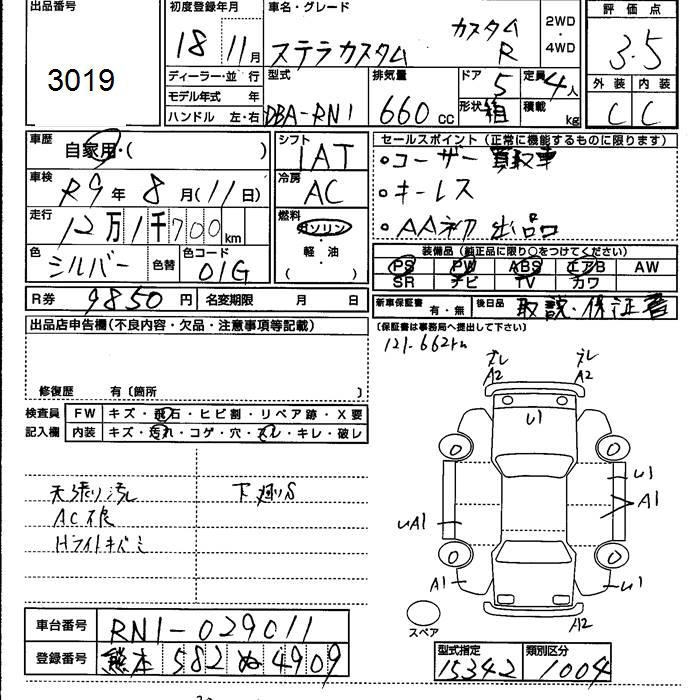 出品番号 3019
初度登録年月 18年 11月
車名・グレード ステラカスタム カスタムR
2WD・4WD
評価点 3.5
外装 C 内装 C
ディーラー・並行
モデル年式 年
ハンドル 左・右
型式 DBA-RN1
排気量 660cc
ドア 5 形状 箱
定員 4人 積載 kg
車歴 自家用・( )
シフト 1AT
車検 R9年 8月(11日)
冷房 AC
走行 12万1千700km
燃料 ガソリン・軽油 ( )
色 シルバー 色替 色コード 01G
R券 9850円 名変期限 月 日
セールスポイント(正常に機能するものに限ります)
・ユーザー買取車
・キーレス
・AA初出品
装備品(純正品に限り○をつけてください)
PS PW ABS エアB AW
SR ナビ TV カワ
新車保証書 有・無 後日品 取説・保証書
(保証書は事務局へ提出して下さい)
121-662km
出品店申告欄(不良内容・欠品・注意事項等記載)
修復歴 有〔箇所 〕
検査員記入欄
FW キズ・飛石・ヒビ割・リペア跡・X要
内装 キズ・汚れ・コゲ・穴・スレ・キレ・破レ
天張り汚れ 下廻りS
AC不良
Hライトキバミ
ズレ A2 ズレ A2
U1
0 0
U1
A1
UA1
0 0
A1 U1
A2
スペア
車台番号 RN1-029011
登録番号 熊本 582 ぬ 4909
型式指定 15342 類別区分 1004